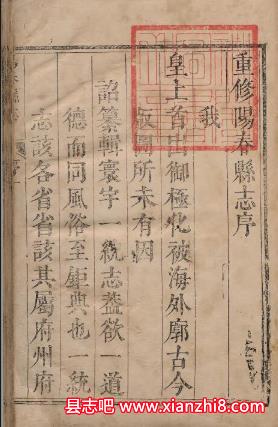 重修陽春縣志序
我
皇上首出御極化被海外廓古今
版圖所未有因
詔纂輯寰宇一統志蓋欲一道
德而同風俗至鉅典也一統
志該各省省該其屬府州府
县志吧 www.xianzhi8.com